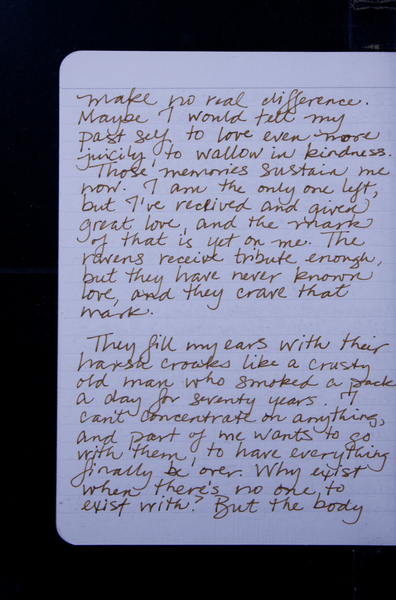 make no real difference.
Maybe I would tell my
past self to love even more
juicily, to wallow in kindness.
Those memories sustain me
now. I am the only one left,
but I've received and given
great love, and the mark
of that is yet on me. The
ravens receive tribute enough,
but they have never known
love, and they crave that
mark.
They fill my ears with their
harsh croaks like a crusty
old man who smoked a pack
a day for seventy years. I
can't concentrate on anything,
and part of me wants to go
with them, to have everything
finally be over. Why exist
when there's no one to
exist with? But the body